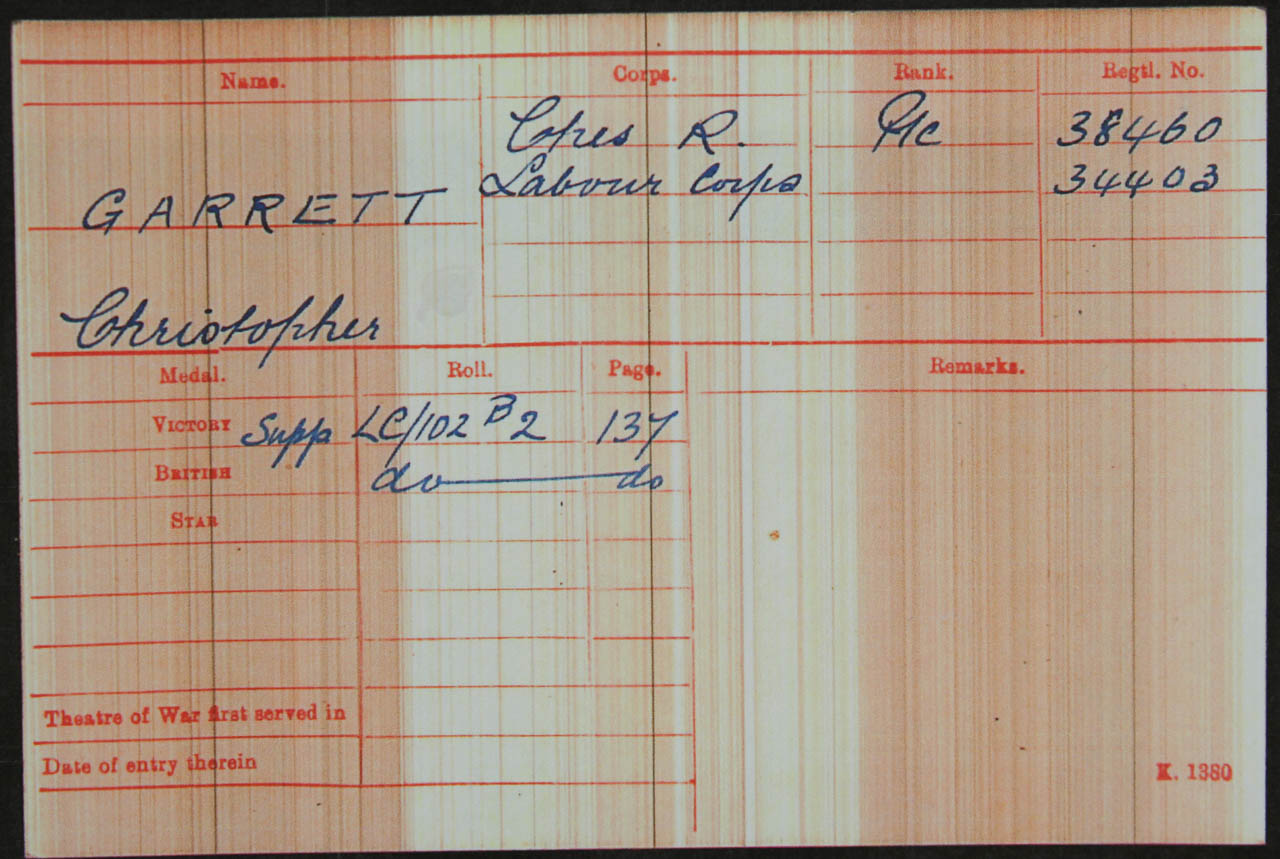 Name. Corps. Rank. Regtl. No.
Ches R. Pte 38460
Labour Corps 34403
GARRETT
Christopher
Medal. Roll. Page. Remarks.
VICTORY Supp LC/102 B2 137
BRITISH do do
STAR
Theatre of War first served in
Date of entry therein
K. 1380